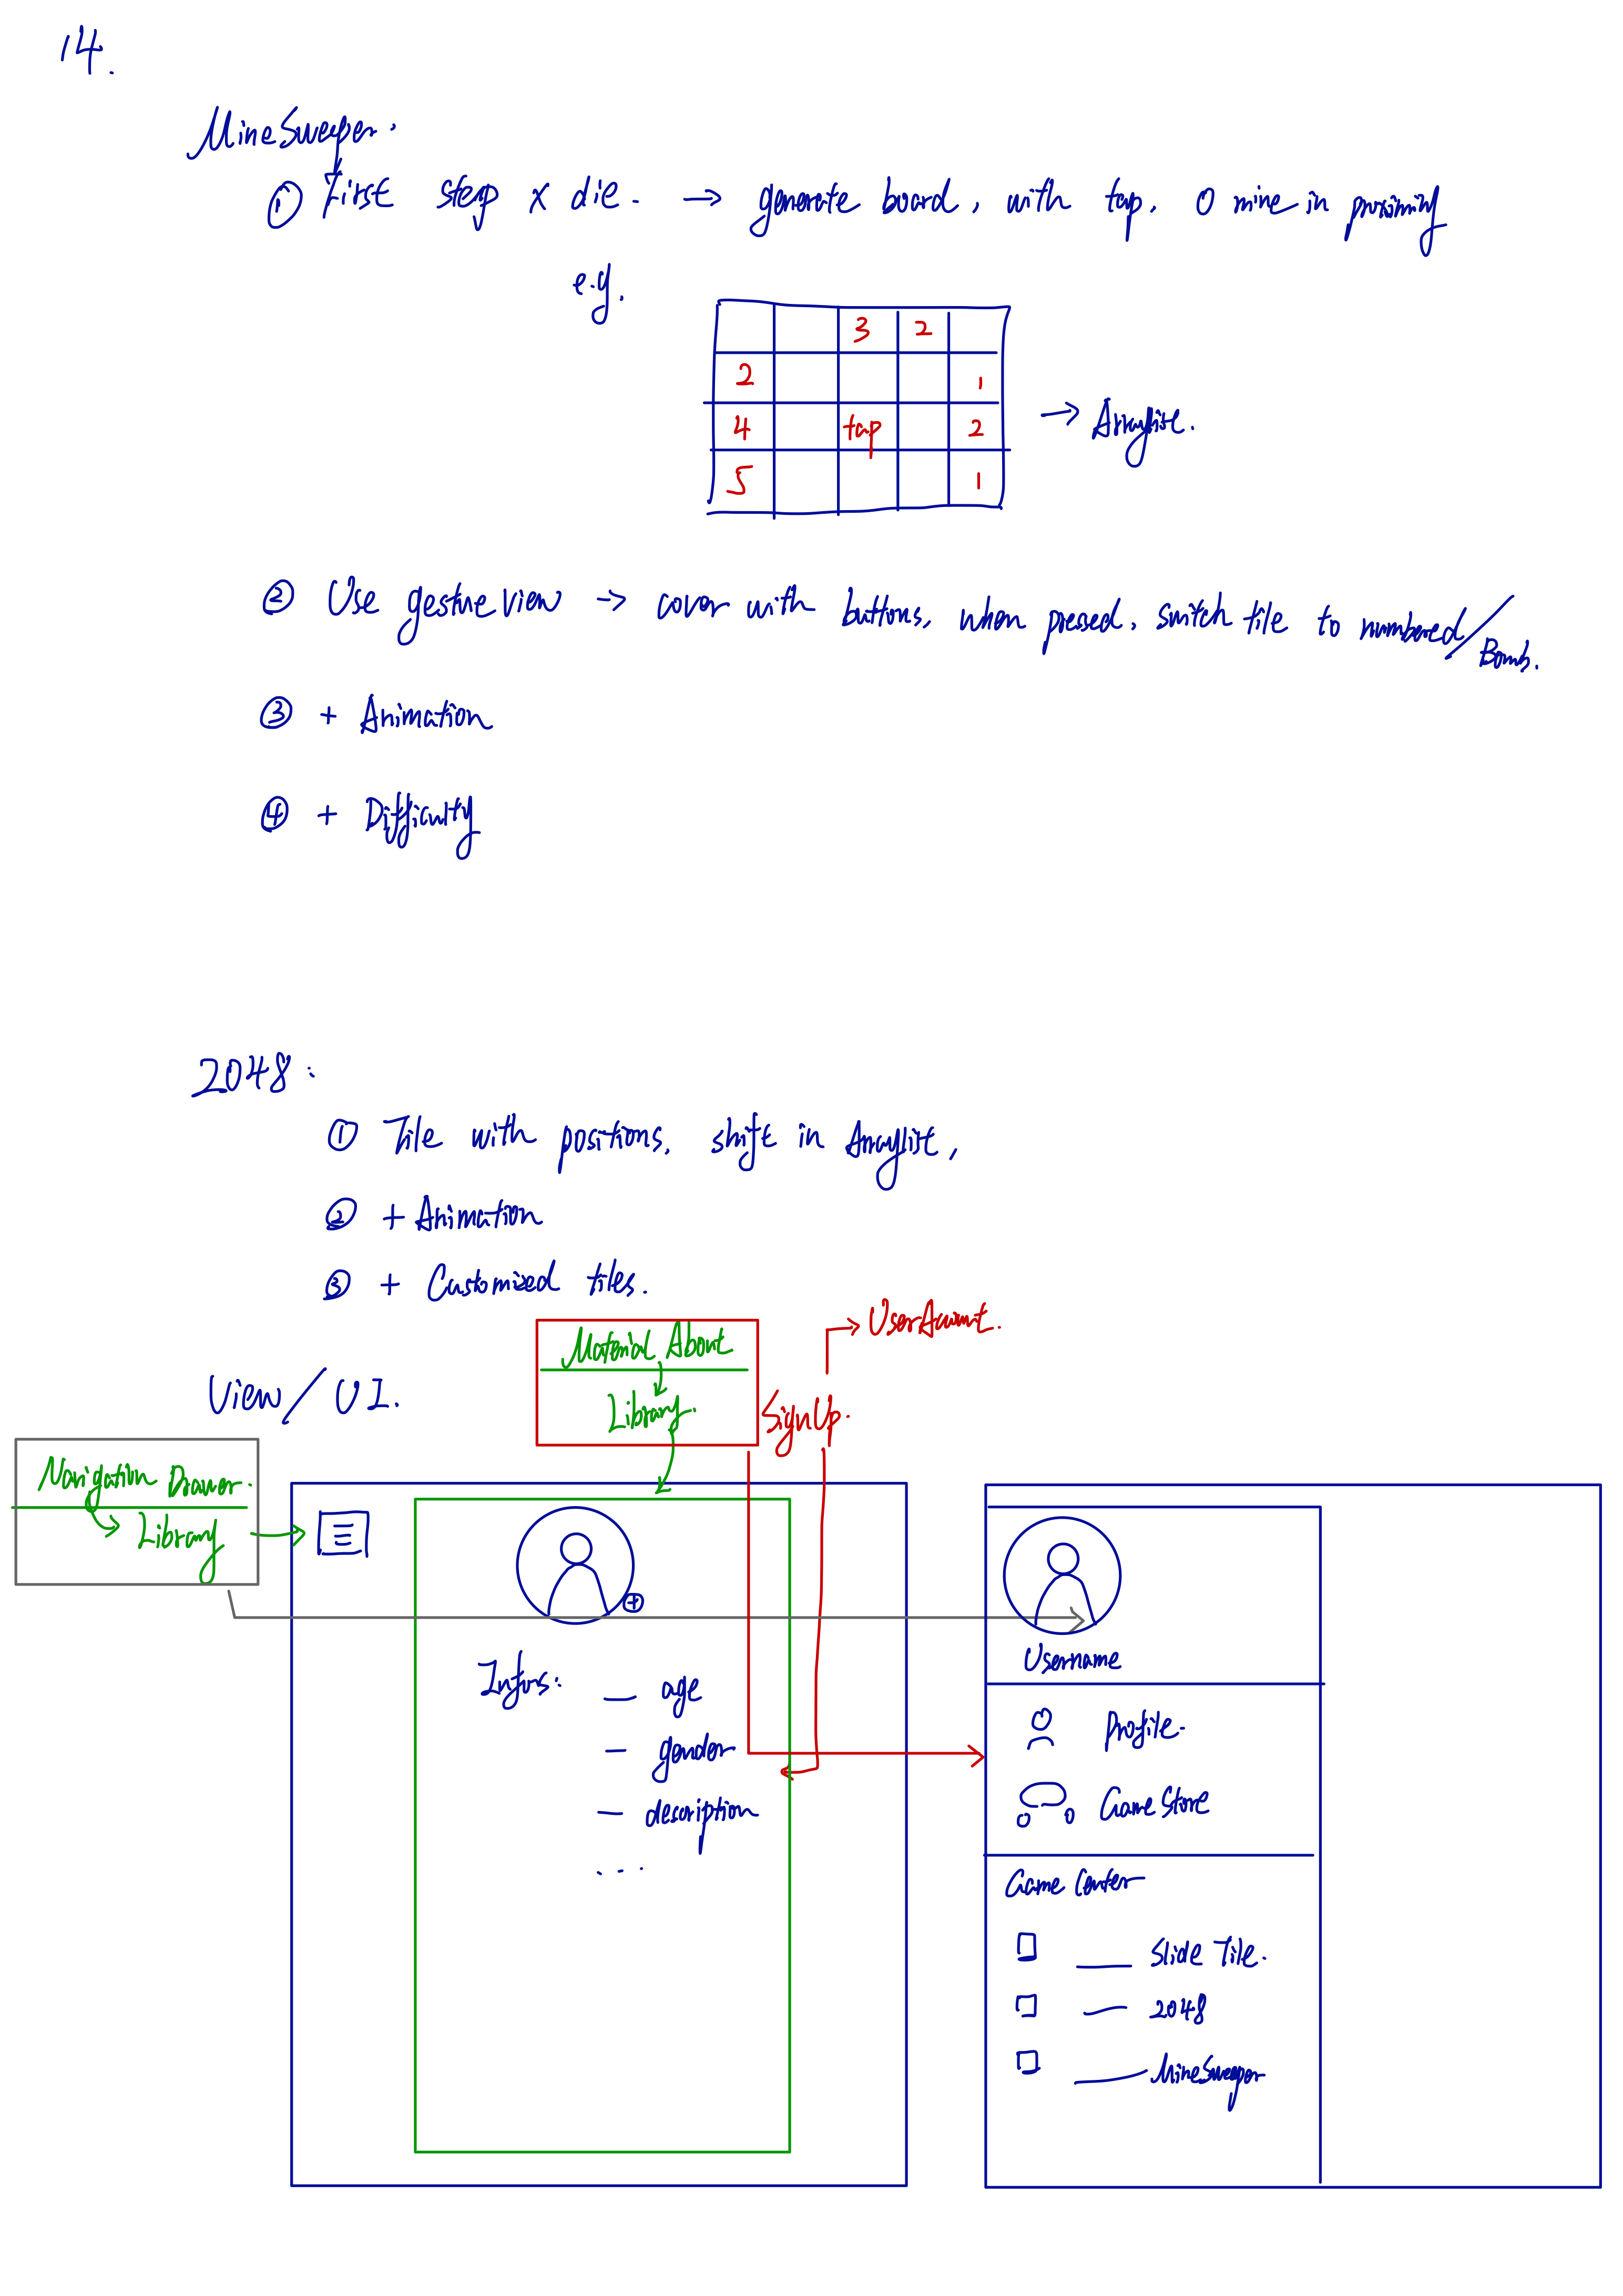 14.
MineSweeper:
① First step x die. → generate board, with tap, 0 mine in proximity
e.g.
3 2
2 1
4 tap 2
5 1
→ Arraylist.
② Use gestureView → cover with buttons, when pressed, switch tile to numbered/
Bomb.
③ + Animation
④ + Difficulty
2048:
① Tile with positions, shift in Arraylist,
② + Animation
③ + Customized tiles.
→ UserAccount.
Material About
Library.
View/UI.
SignUp.
Navigation Drawer.
Library
Username
Infos:
— age
— gender
— description
...
Profile
Game Store
Game Center
Slide Tile.
2048
MineSweeper